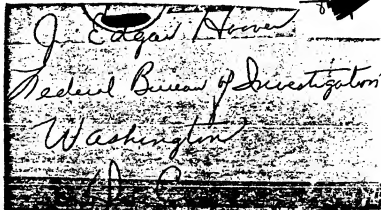 J. Edgar Hoover
Federal Bureau of Investigation
Washington
D. C.